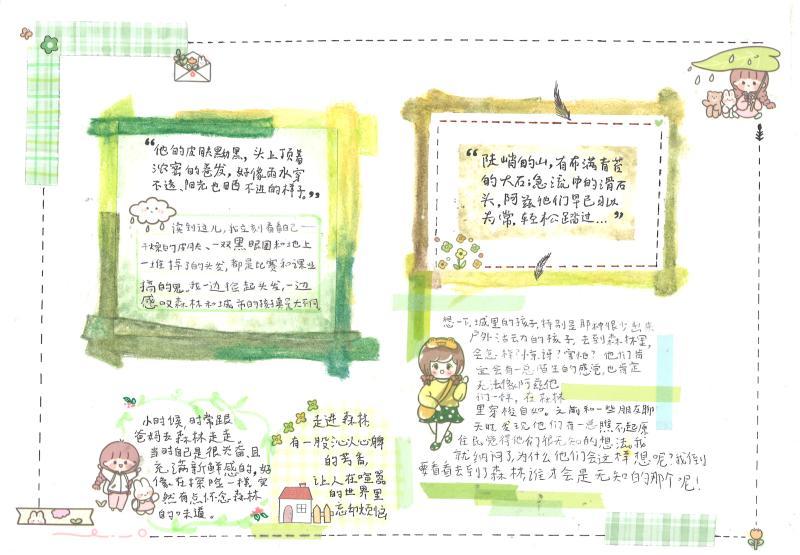 “他的皮肤黝黑，头上顶着
浓密的卷发，好像雨水穿
不透、阳光也晒不进的样子。”
读到这儿，我立刻看看自己——
干燥的皮肤、一双黑眼圈和地上
一堆掉了的头发，都是比赛和课业
搞的鬼。我一边捡起头发，一边
感叹森林和城市的孩子真是大不同
“陡峭的山，有布满青苔
的大石，急流中的滑石
头，阿兹他们早已习以
为常，轻松踏过…”
想一下，城里的孩子，特别是那种很少出来
户外活动的孩子，去到森林里，
会怎样？惊讶？害怕？他们肯
定会有一息陌生的感觉，也肯定
无法像阿兹他
们一样，在森林
里穿梭自如。之前和一些朋友聊
天时发现他们有一息瞧不起原
住民，觉得他们很无知的想法。我
就纳闷了，为什么他们会这样想呢？我倒
要看看去到了森林，谁才会是无知的那个呢！
小时候，时常跟
爸妈去森林走走。
当时自己是很兴奋且
充满新鲜感的，好
像在探险一样。突
然有点怀念森林
的味道。
走进森林
有一股沁人心脾
的芳香，
让人在喧嚣
的世界里
忘却烦恼